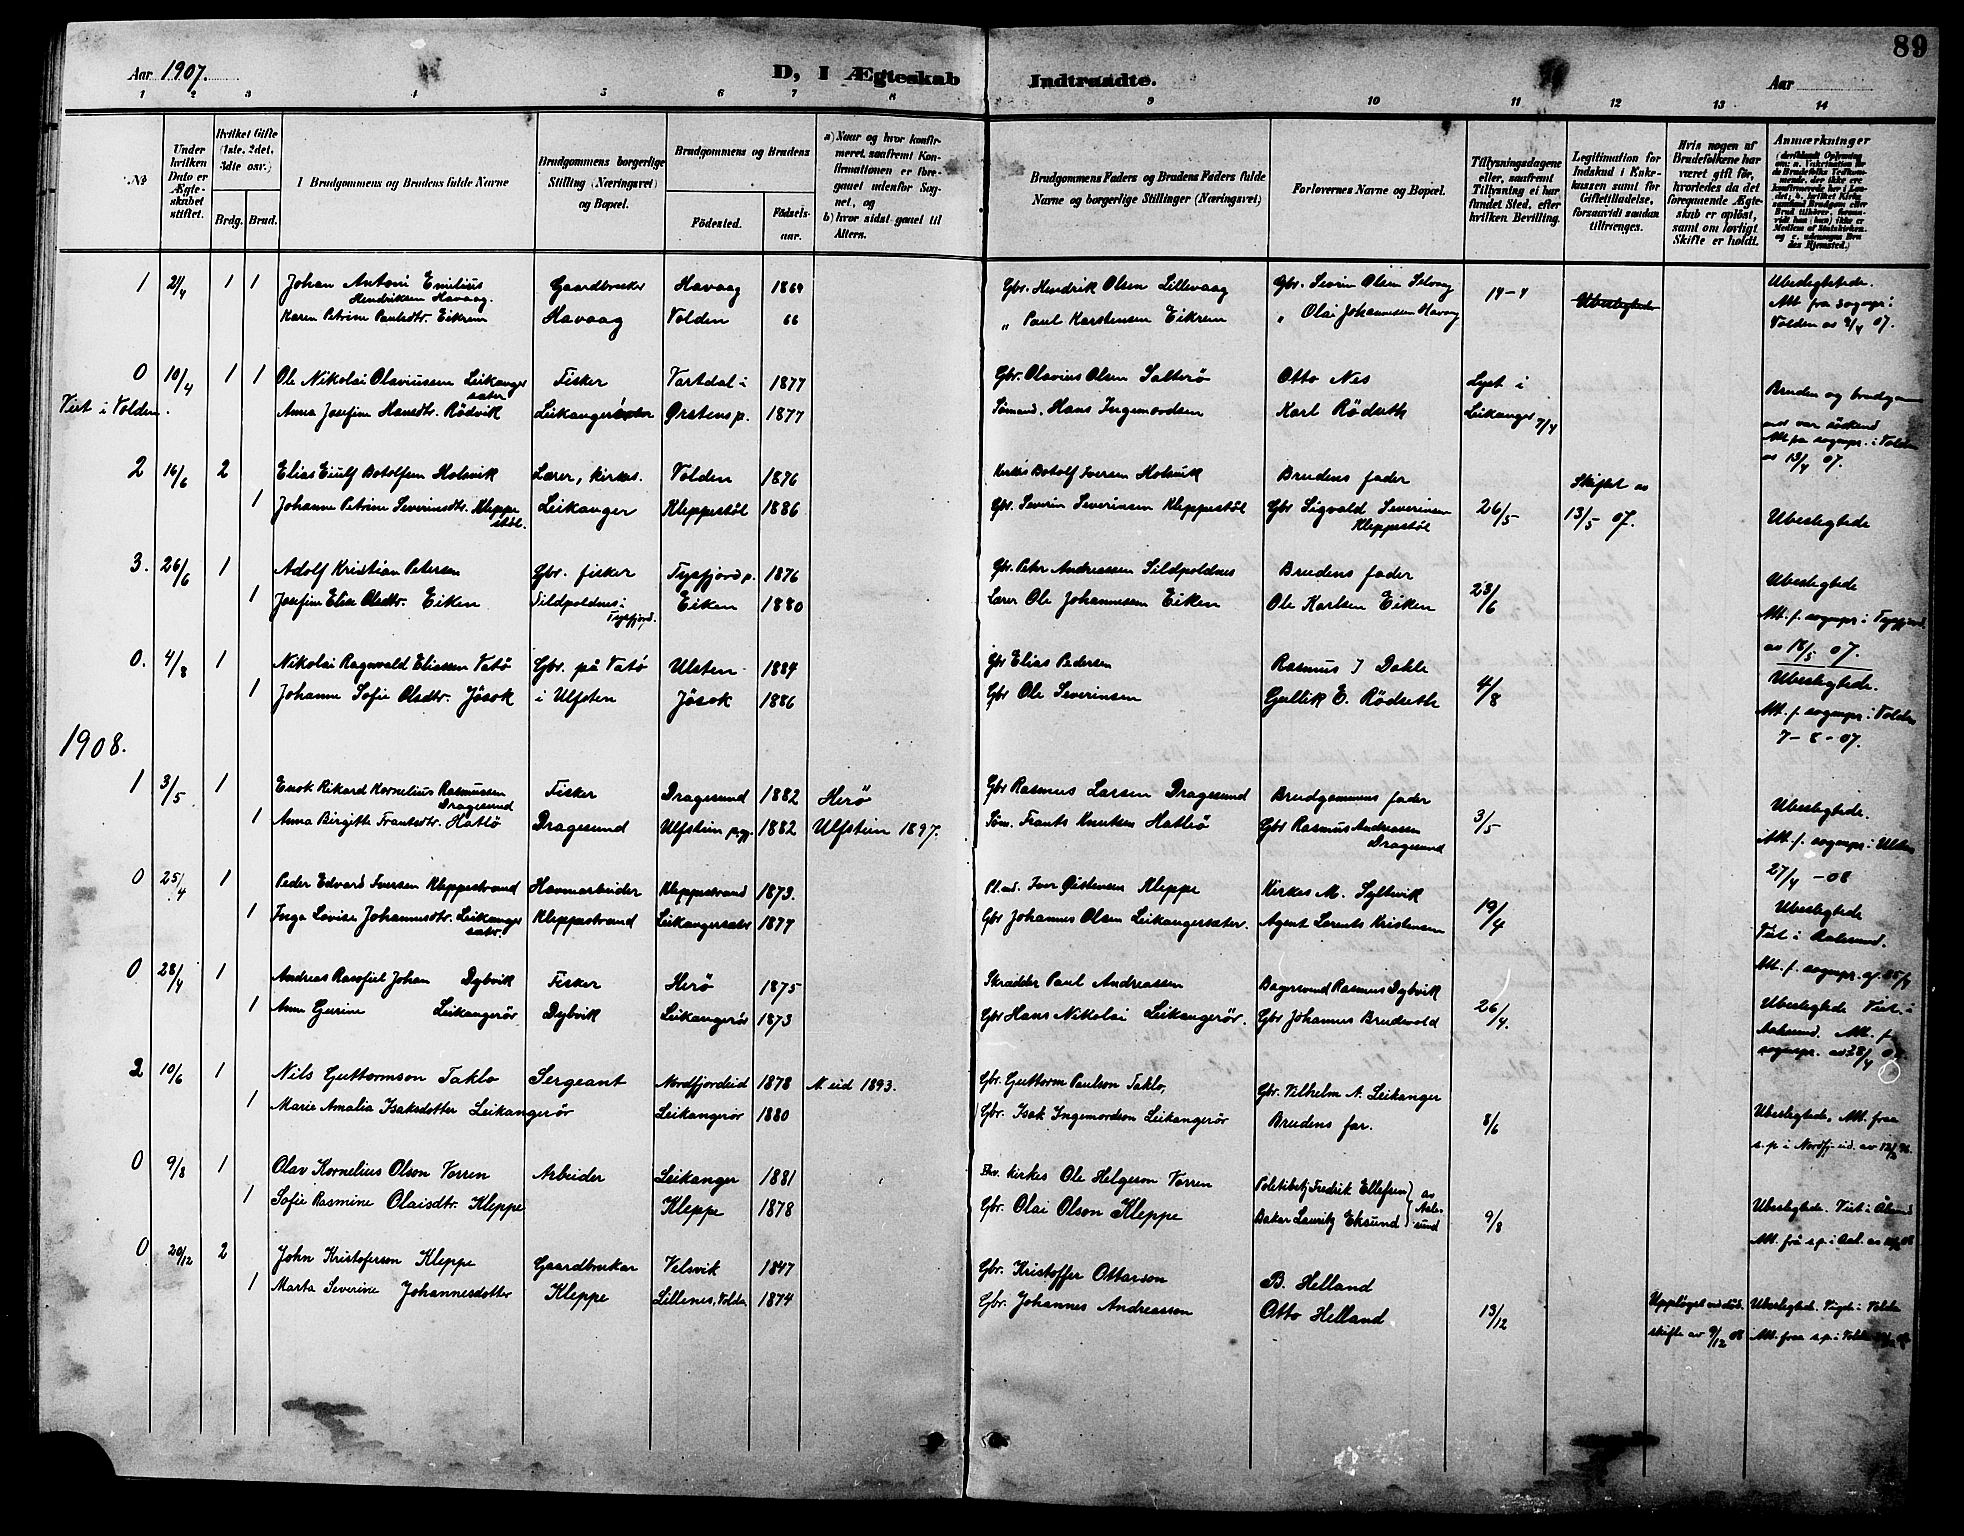 89
Aar 1907.
D, I Ægteskab Indtraadte.
Aar
1 2 3 4 5 6 7 8 9 10 11 12 13 14
No
Under hvilken Dato er Ægteskabet stiftet.
Hvilket Gifte (1ste, 2det, 3die osv.)
Brdg. Brud.
1 Brudgommens og Brudens fulde Navne
Brudgommens borgerlige Stilling (Næringsvei) og Bopæl.
Brudgommens og Brudens
Fødested.
Fødselsaar.
a) Naar og hvor konfirmeret, saafremt Konfirmationen er foregaaet udenfor Sognet, og
b) hvor sidst gaaet til Alters.
Brudgommens Faders og Brudens Faders fulde Navne og borgerlige Stillinger (Næringsvei)
Forlovernes Navne og Bopæl.
Tillysningsdagene eller, saafremt Tillysning ei har fundet Sted, efter hvilken Bevilling.
Legitimation for Indskud i Enkekassen samt for Giftetilladelse, forsaavidt saadan tiltrænges.
Hvis nogen af Brudefolkene har været gift før, hvorledes da det foregaaende Ægteskab er opløst, samt om lovligt Skifte er holdt.
Anmærkninger
1 2/4 1 1 Johan Antoni Emilius Hendriksen Havaag. Gaardbruker Havaag 1869 Gbr. Hendrik Olsen Lillevaag Gbr. Severin Olsen 14-4 Ubeslegtede Ubeslegtede.
Karen Petrine Paulsdtr. Eikrem Havaag Volden 66 " Paul Karstensen Eikrem " Olai Johannesen Havaag Att fra sognepr. i Volden av 9/4 07.
0 10/4 1 1 Ole Nikolai Olaviussen Leikanger sæter Fisker Vartdal i 1877 Gbr. Olavius Olsen Salterö Otto Nes Lyst i
Viet i Volden. Anna Josefine Hansdtr. Rödvik Leikangersæter Ørstens p. 1877 Sømand. Hans Ingemordsen Karl Rödseth Leikanger 7/4
Bruden og brudgommen var søskend
Att fra sognepr. i Volden av 13/4 07.
2 16/6 2 Elias Eiulf Botolfsen Holsvik Lærer, kirkes. Volden 1876 Kirkes Botolf Iversen Holsvik Brudens fader Skiftet av
1 Johanne Petrine Severinsdtr. Kleppe støl. Leikanger Kleppestøl 1886 Gbr. Severin Severinsen Kleppestøl Gbr Sigvald Severinsen Kleppestøl 26/5 13/5 07. Ubeslegtede
3. 26/6 1 Adolf Kristian Petersen Gbr. fisker Tysfjord p. 1876 Gbr. Peter Andreassen Sildpoldnes Brudens fader Ubeslegtede
1 Josefine Elise Olsdtr. Eiken Sildpoldnes i Tysfjord. Eiken 1880 Lærer Ole Johannesen Eiken Ole Karlsen Eiken 23/6 Att. f. sognepr i Tysfjord. av 18/5 07.
0. 4/8 1 Nikolai Ragnvald Eliassen Vatö Gbr. på Vatö Ulsten 1884 Gbr Elias Pedersen Rasmus J Dahle Ubeslegtede.
1 Johanne Sofie Olsdtr. Jösok i Ulfsten Jösok 1886 Gbr Ole Severinsen Gullik E. Rödseth 4/8 Att. f. sognepr. i Volden 7-8-07.
1908.
1 3/5 1 Enok Rikard Kornelius Rasmussen Dragesund Fisker Dragesund 1882 Herö Gbr Rasmus Larsen Dragesund Brudgommens fader Ubeslegtede.
1 Anna Birgitte Frantsdtr. Hatlö Dragesund Ulfstein pgj. 1882 Ulfstein 1897. Søm. Frants Knutsen Hatlö Gbr Rasmus Andreassen Dragesund 3/5 Att. f. sognepr. i Ulsten 27/4-08
0 25/4 1 Peder Edvard Iversen Kleppestrand Havnarbeider Kleppestrand 1873. Iver Østensen Kleppe Kirkes M. Syltevik Ubeslegtede
1 Inga Lovise Johannesdtr. Leikanger sætr. Kleppestrand Leikangersætr 1877 Gbr Johannes Olsen Leikangersæter. Agent Lorents Kristensen 19/4 Viet i Aalesund.
Att. f. sognepr. af 25/4
0 28/4 1 Andreas Johan Dybvik Fisker Herö 1875 Skrædder Paul Andreassen Rasmus Dybvik
1 Anne Gurine Leikangerör Dybvik Leikangerör 1873 Gbr Hans Nikolai Leikangerör. Gbr Johannes Brudevold 26/4. Ubeslegtede Viet i Aalesund. Att. f. sognepr. av 28/4 08
2 10/6 1 Nils Guttormson Taklo Sergeant Nordfjordeid 1878 N. eid 1893. Gbr. Guttorm Paulson Taklo, Gbr. Vilhelm A. Leikanger
1 Marie Amalia Isaksdotter Leikangerör Leikangerör 1880 Gbr. Isak Ingemordson Leikangerör Brudens far. 8/6 Ubeslegtede, Att. fraa s.p i Nordfj.eid. av
0 9/8 1 Olav Kornelius Olson Vorren Arbeider Leikanger 1881 Fhv. kirkes Ole Helgeson Vorren Politibetj Fredrik Ellefsen } av Aalesund
1 Sofie Rasmine Olaisdtr. Kleppe Kleppe 1878 Gbr. Olai Olson Kleppe Baker Lauritz Eksund 9/8 Ubeslegtede. Viet i Ålesund Att. frå s.p. i Aal. av
0 20/12 2 John Kristoferson Kleppe Gaardbrukar Velsvik 1847 Gbr. Kristoffer Ottarson B. Helland
1 Marta Severine Johannesdotter Kleppe Lillenes, Volda. 1874 Gbr. Johannes Andreasson Otto Helland 13/12 Upplöyst ved död. skifte av 9/12 08 Ubeslegtede. Vigde i Volda Att. fraa s.p. i Volda